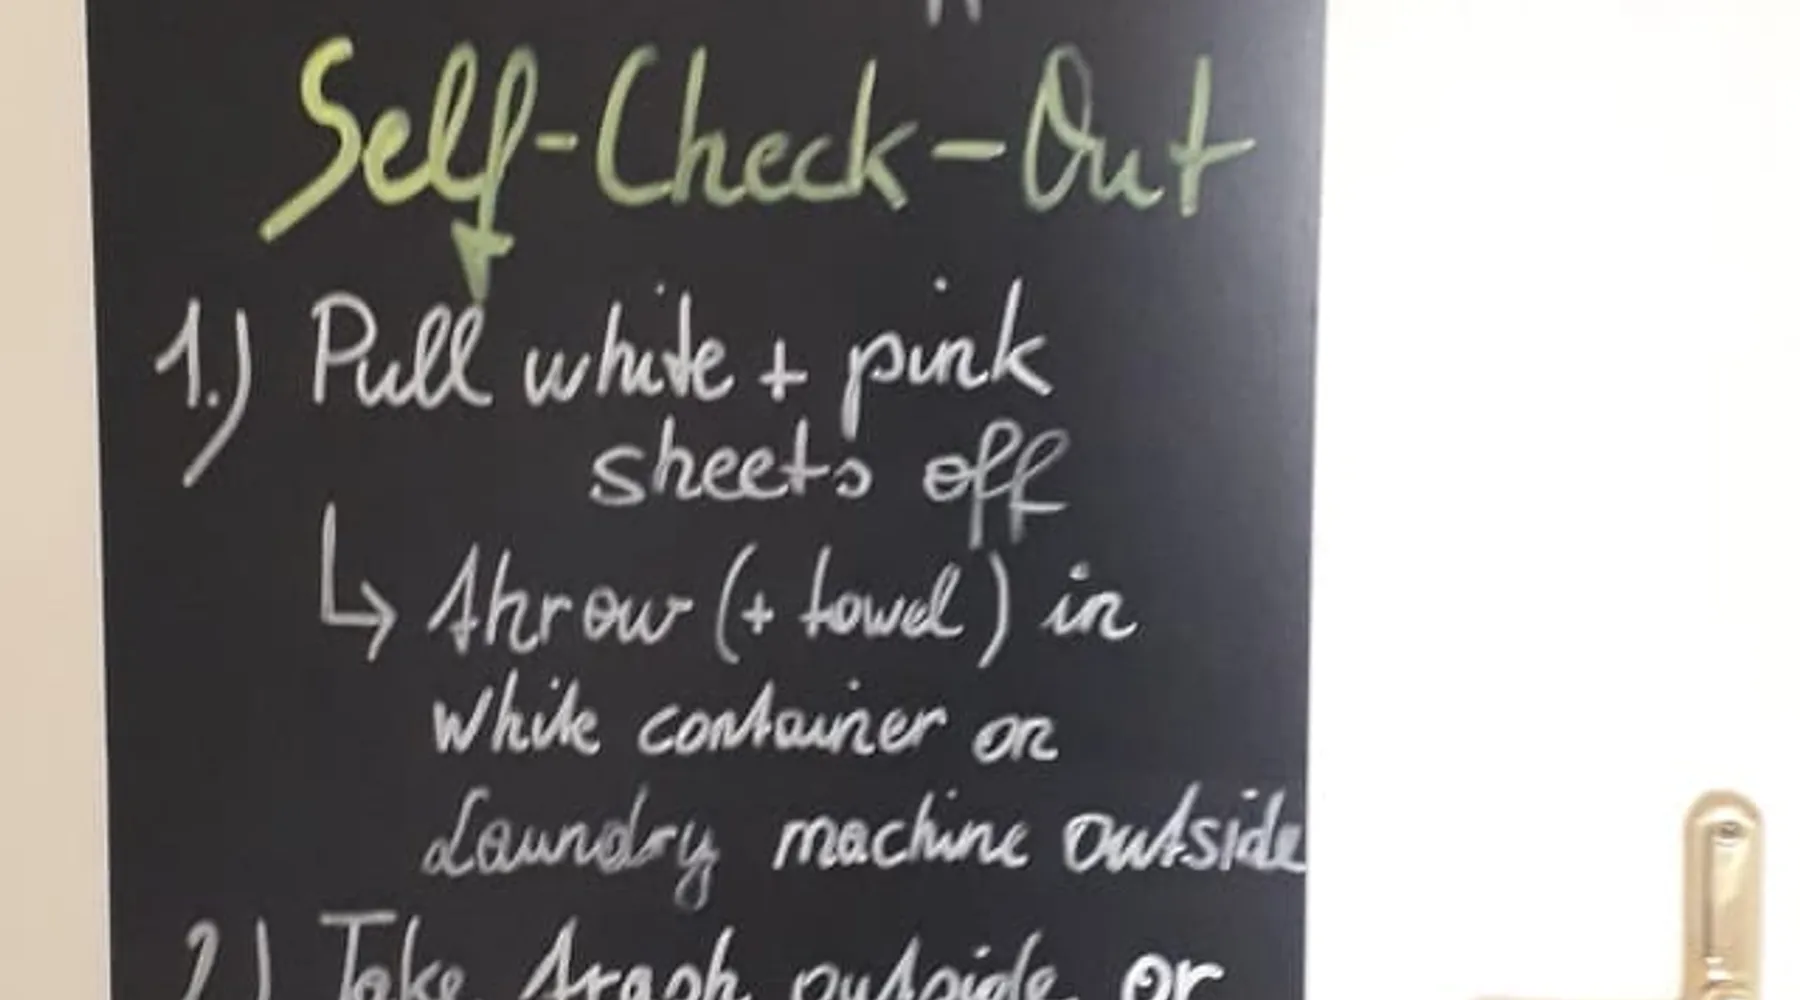 Self-Check-Out
1.) Pull white + pink
sheets off
↳ throw (+ towel) in
white container on
Laundry machine outside
2.) Take trash outside or